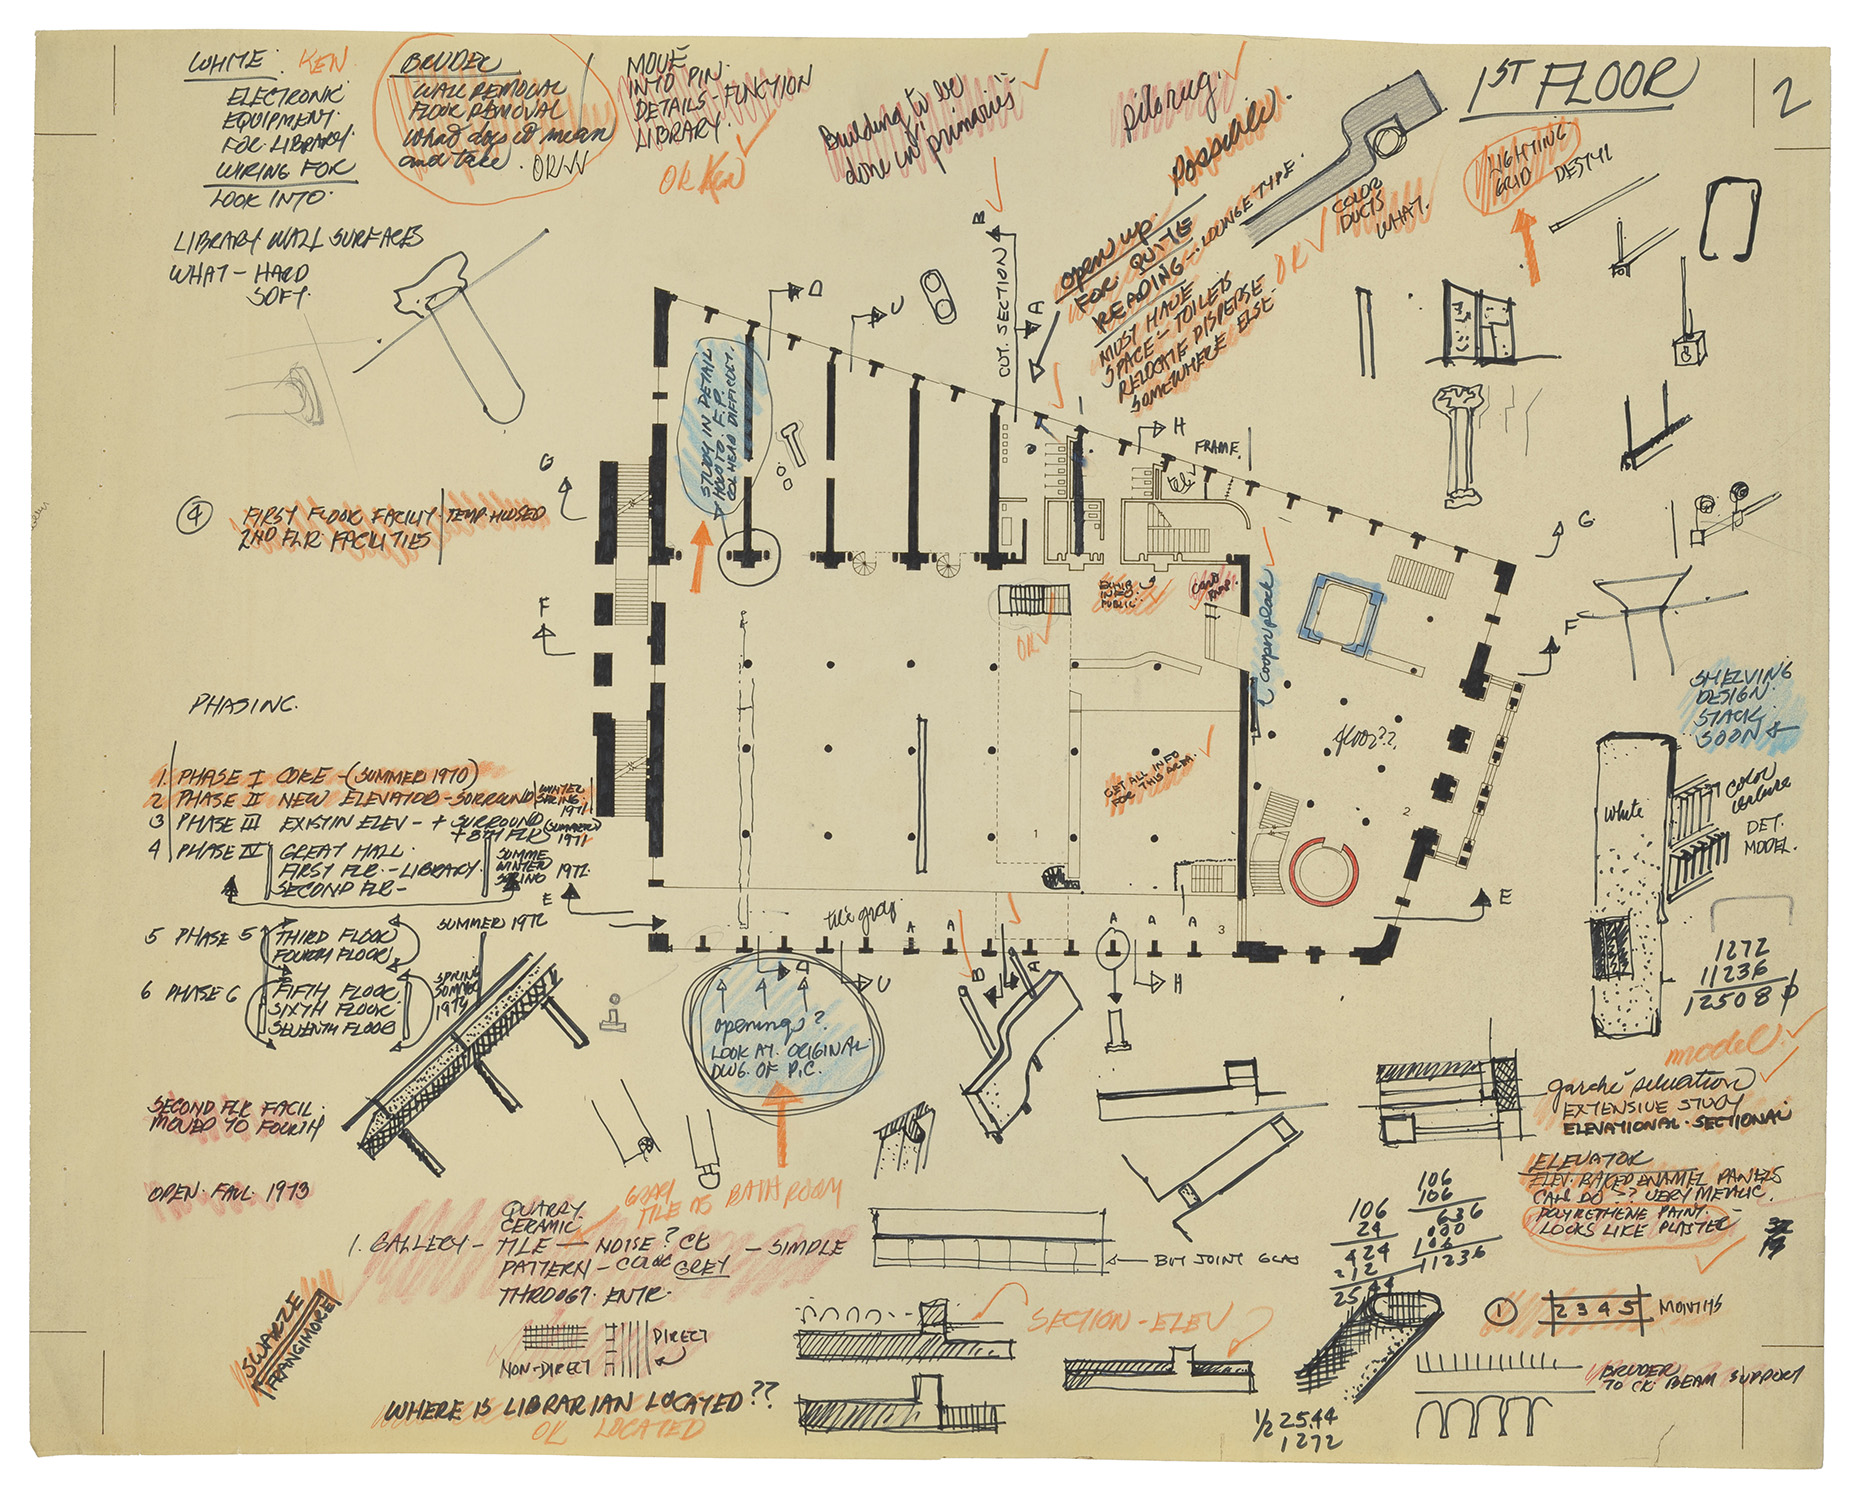 WHITE. KEN
ELECTRONIC
EQUIPMENT.
FOR. LIBRARY
WIRING FOR
LOOK INTO.
BRUDER
WALL REMOVAL
FLOOR REMOVAL
What does it mean
and take. OK
MOVE
INTO PIN.
DETAILS - FUNCTION
LIBRARY.
OK KEN
Building to be
done in primaries
pits rug.
Possible.
1ST FLOOR
2
LIGHTING
GRID DESTYL
COLOR
DUCTS
WHAT.
open up.
FOR QUITE
READING - LOUNGE TYPE.
MUST HAVE
SPACE - TOILETS
RELOCATE DISPERSE
SOMEWHERE ELSE
OK
LIBRARY WALL SURFACES
WHAT - HARD
SOFT.
CUT. SECTION
B
A
D
U
STUDY IN DETAIL
HOW TO. F.P.
COL HEAD DIFFICULT.
H
FRAME.
G
G
F
F
4 FIRST FLOOR FACILITY. TEMP. HOUSED
2ND FLR. FACILITIES
EXHIB
INFO.
PUBLIC.
OK
cooper/plack
floor??
GET ALL INFO
FOR THIS AREA.
1
2
3
SHELVING
DESIGN.
STACK.
SOON
white
COLOR
texture
DET.
MODEL.
PHASING.
1. PHASE I CORE - (SUMMER 1970)
2 PHASE II NEW ELEVATOR - SURROUND WINTER SPRING 1971
3 PHASE III EXISTIN ELEV - + SURROUND
+ 8TH FLR (SUMMER) 1971
4 PHASE IV GREAT HALL.
FIRST FLR. - LIBRARY.
SECOND FLR -
SUMME
WINTER
SPRING 1972.
5 PHASE 5 THIRD FLOOR
FOURTH FLOOR
SUMMER 1972
6 PHASE 6 FIFTH FLOOR
SIXTH FLOOR
SEVENTH FLOOR
SPRING
SUMMER
1974
E
E
tile gray.
A A A A A
D
U
B
A
H
openings?
LOOK AT. ORIGINAL.
DWG. OF P.C.
1272
11236
12508
model.
garche situation
EXTENSIVE STUDY
ELEVATIONAL. SECTIONAL
SECOND FLR FACIL.
MOVED TO FOURTH
OPEN. FALL. 1973
ELEVATOR
ELEV. BAKED ENAMEL PANELS
CAN DO -?? VERY METALIC.
POLYRETHENE PAINT. -
LOOKS LIKE PLASTER
106
24
424
212
25.44
106
106
636
000
106
11236
QUARRY.
CERAMIC.
1. GALLERY - TILE - NOISE? CK - SIMPLE
PATTERN - COLOR GREY
THROUGT. ENTR.
GRAY
TILE AS BATHROOM
BUT JOINT GLAS
NON-DIRECT
DIRECT
SECTION - ELEV
1 2 3 4 5 MONTHS
SWARZE
FRANGIMORE
WHERE IS LIBRARIAN LOCATED??
OK LOCATED
BRUDER
TO CK. BEAM SUPPORT
1/2 25.44
1272